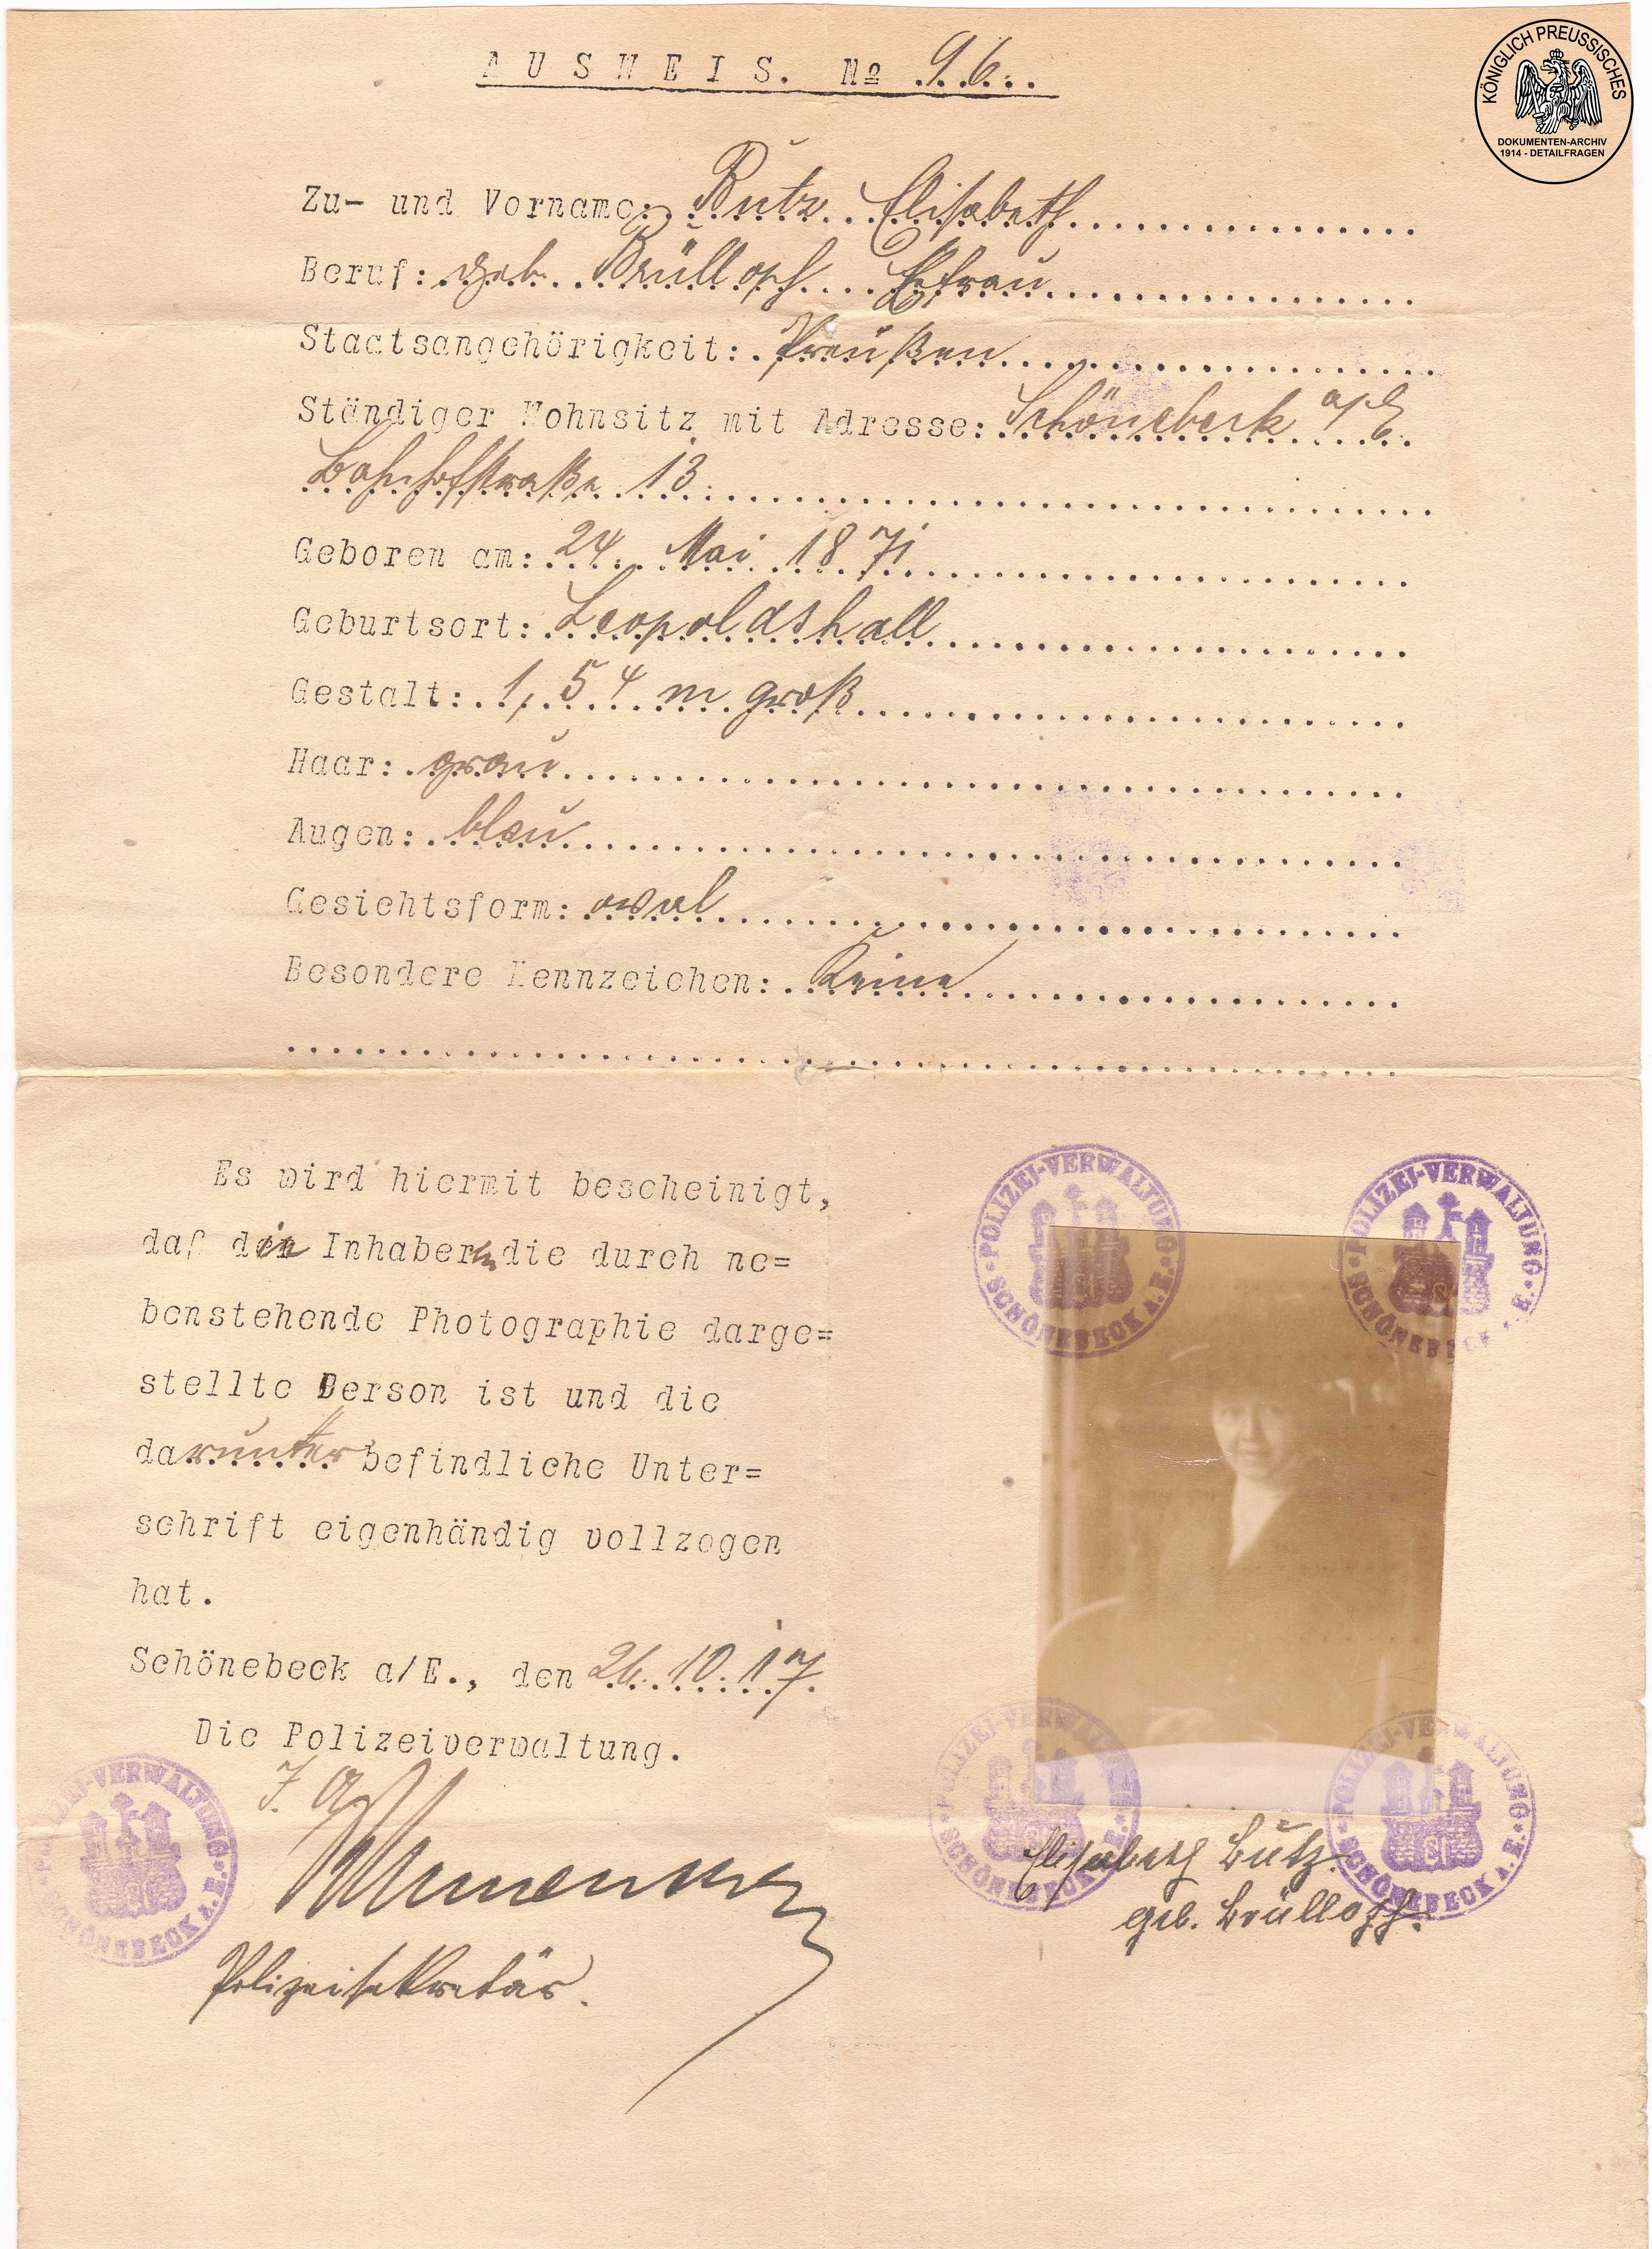 AUSWEIS. No 96.
KÖNIGLICH PREUSSISCHES
DOKUMENTEN-ARCHIV
1914 - DETAILFRAGEN
Zu- und Vorname: Butz Elisabeth
Beruf: geb. Brülloph Ehefrau
Staatsangehörigkeit: Preußen
Ständiger Wohnsitz mit Adresse: Schönebeck a/E
Bahnhofstraße 13
Geboren am: 24. Mai 1871
Geburtsort: Leopoldshall
Gestalt: 1,54 m groß
Haar: grau
Augen: blau
Gesichtsform: oval
Besondere Kennzeichen: Keine
Es wird hiermit bescheinigt,
daß die Inhaberin die durch ne=
benstehende Photographie darge=
stellte Person ist und die
darunter befindliche Unter=
schrift eigenhändig vollzogen
hat.
Schönebeck a/E., den 26.10.17.
Die Polizeiverwaltung.
I. A.
Polizeisekretär.
POLIZEI-VERWALTUNG
SCHÖNEBECK A. E.
POLIZEI-VERWALTUNG
SCHÖNEBECK A. E.
POLIZEI-VERWALTUNG
SCHÖNEBECK A. E.
POLIZEI-VERWALTUNG
SCHÖNEBECK A. E.
POLIZEI-VERWALTUNG
SCHÖNEBECK A. E.
Elisabeth Butz.
geb. Brülloph.